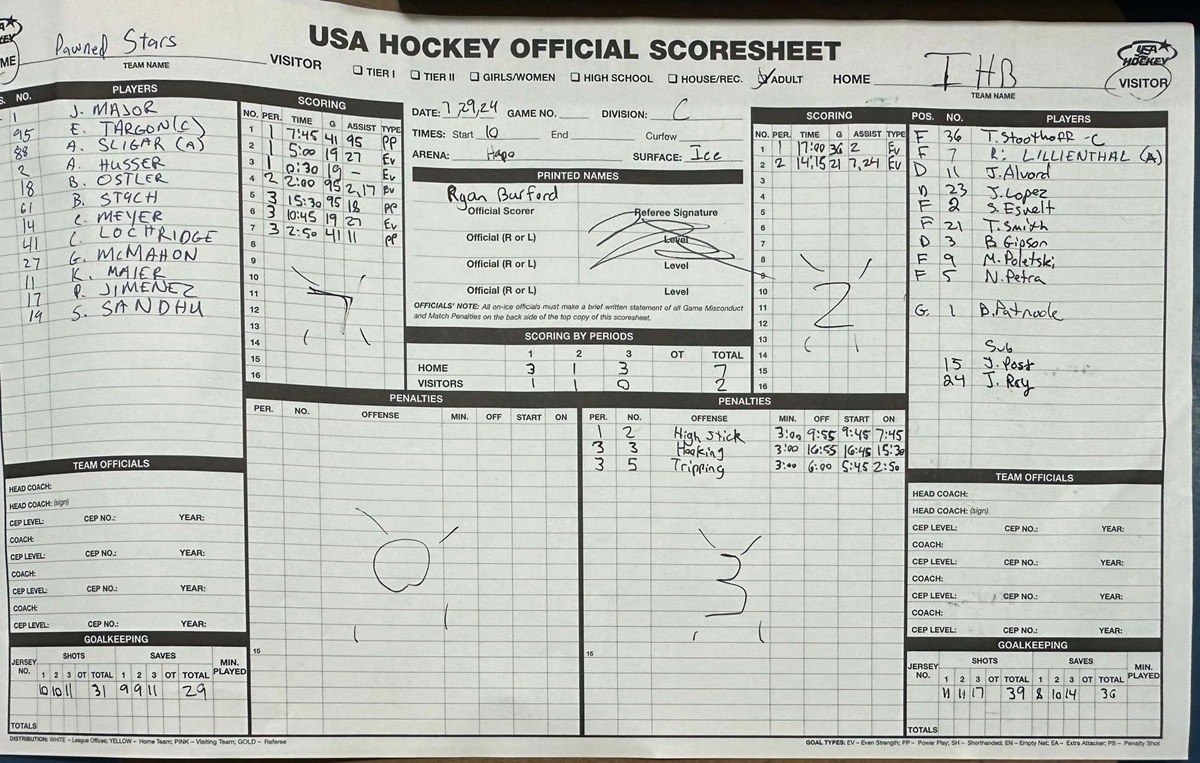 USA HOCKEY OFFICIAL SCORESHEET
Pawned Stars
TEAM NAME
VISITOR
TIER I TIER II GIRLS/WOMEN HIGH SCHOOL HOUSE/REC. ADULT
HOME
IHB
TEAM NAME
USA HOCKEY
VISITOR
ME
NO. PLAYERS
1 J. MAJOR
95 E. TARGON(C)
88 A. SLIGAR (A)
2 A. HUSSER
18 B. OSTLER
61 B. STACH
14 C. MEYER
41 C. LOCHRIDGE
27 G. McMAHON
11 K. MAIER
17 P. JIMENEZ
19 S. SANDHU
SCORING
NO. PER. TIME G ASSIST TYPE
1 1 7:45 41 95 PP
2 1 5:00 19 27 Ev
3 1 0:30 19 - Ev
4 2 2:00 95 2,17 Ev
5 3 15:30 95 18 PP
6 3 10:45 19 27 Ev
7 3 2:50 41 11 PP
8
9
10
11
12
13
14
15
16
7
DATE: 7,29,24 GAME NO. DIVISION: C
TIMES: Start 10 End Curfew
ARENA: Hapo SURFACE: Ice
PRINTED NAMES
Ryan Burford
Official Scorer Referee Signature
Official (R or L) Level
Official (R or L) Level
Official (R or L) Level
OFFICIALS' NOTE: All on-ice officials must make a brief written statement of all Game Misconduct
and Match Penalties on the back side of the top copy of this scoresheet.
SCORING BY PERIODS
1 2 3 OT TOTAL
HOME 3 1 3 7
VISITORS 1 1 0 2
SCORING
NO. PER. TIME G ASSIST TYPE
1 1 17:00 36 2 Ev
2 2 14:15 21 7,24 Ev
3
4
5
6
7
8
9
10
11
12
13
14
15
16
2
POS. NO. PLAYERS
F 36 T. Stoothoff -C
F 7 R. LILLIENTHAL (A)
D 11 J. Alvord
D 23 J. Lopez
F 2 S. Esvelt
F 21 T. Smith
D 3 B. Gipson
F 9 M. Poletski
F 5 N. Petra
G 1 B. Patnode
Sub
15 J. Post
24 J. Roy
PENALTIES
PER. NO. OFFENSE MIN. OFF START ON
0
15
PENALTIES
PER. NO. OFFENSE MIN. OFF START ON
1 2 High stick 3:00 9:55 9:45 7:45
3 3 Hooking 3:00 16:55 16:45 15:30
3 5 Tripping 3:00 6:00 5:45 2:50
3
15
TEAM OFFICIALS
HEAD COACH:
HEAD COACH: (sign)
CEP LEVEL: CEP NO.: YEAR:
COACH:
CEP LEVEL: CEP NO.: YEAR:
COACH:
CEP LEVEL: CEP NO.: YEAR:
COACH:
CEP LEVEL: CEP NO.: YEAR:
GOALKEEPING
JERSEY NO. SHOTS SAVES MIN. PLAYED
1 2 3 OT TOTAL 1 2 3 OT TOTAL
10 10 11 31 9 9 11 29
TOTALS
TEAM OFFICIALS
HEAD COACH:
HEAD COACH: (sign)
CEP LEVEL: CEP NO.: YEAR:
COACH:
CEP LEVEL: CEP NO.: YEAR:
COACH:
CEP LEVEL: CEP NO.: YEAR:
COACH:
CEP LEVEL: CEP NO.: YEAR:
GOALKEEPING
JERSEY NO. SHOTS SAVES MIN. PLAYED
1 2 3 OT TOTAL 1 2 3 OT TOTAL
11 11 17 39 8 10 14 36
TOTALS
DISTRIBUTION: WHITE – League Offices; YELLOW – Home Team; PINK – Visiting Team; GOLD – Referee
GOAL TYPES: EV – Even Strength; PP – Power Play; SH – Shorthanded; EN – Empty Net; EA – Extra Attacker; PS – Penalty Shot